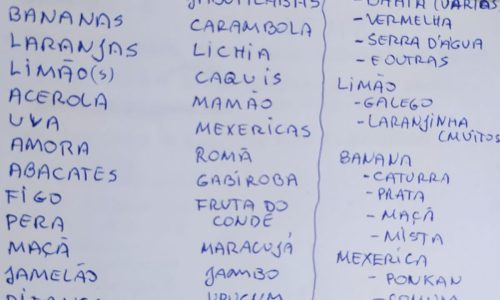 BANANAS
LARANJAS
LIMÃO(S)
ACEROLA
UVA
AMORA
ABACATES
FIGO
PERA
MAÇÃ
JAMELÃO
PITANGA
JABUTICABAS
CARAMBOLA
LICHIA
CAQUIS
MAMÃO
MEXERICAS
ROMÃ
GABIROBA
FRUTA DO
CONDE
MARACUJÁ
JAMBO
URUCUM
- BAHIA (VÁRIAS
- VERMELHA
- SERRA D'ÁGUA
- E OUTRAS
LIMÃO
- GALEGO
- LARANJINHA
(MUITOS
BANANA
- CATURRA
- PRATA
- MAÇÃ
- MISTA
MEXERICA
- PONKAN